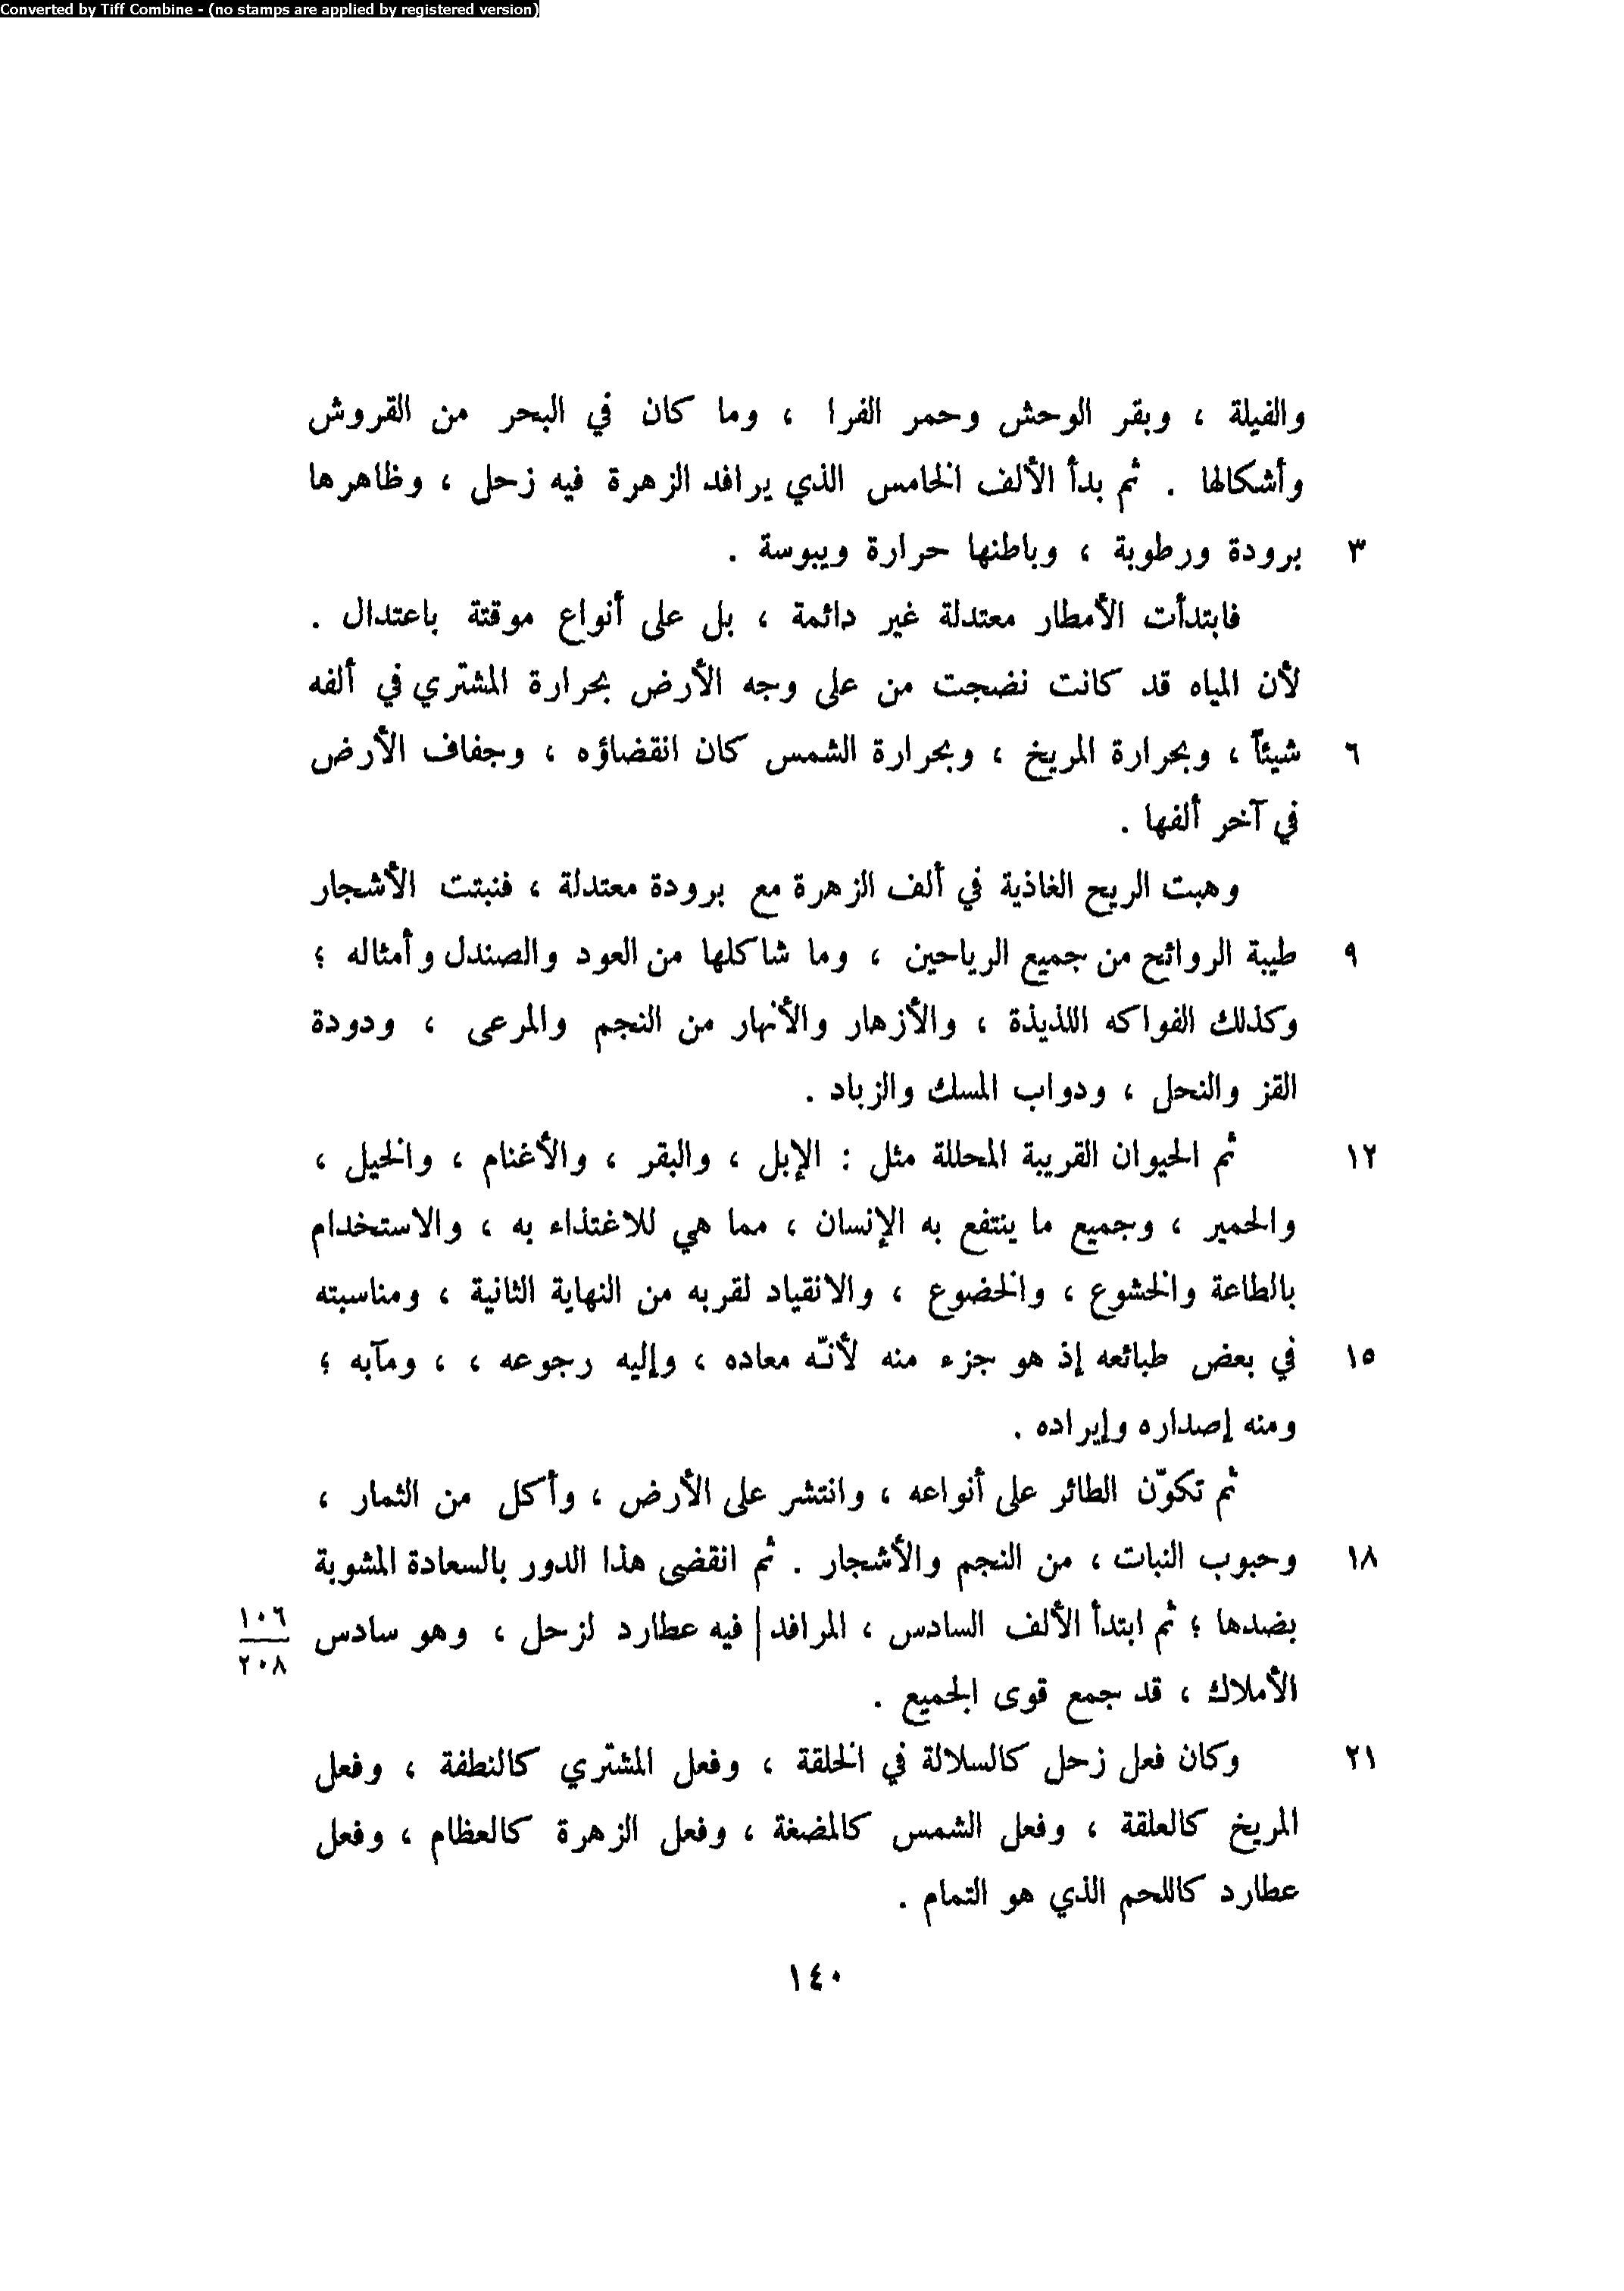 Converted by Tiff Combine - (no stamps are applied by registered version)
والفيلة ، وبقر الوحش وحمر الفرا ، وما كان في البحر من القروش
وأشكالها . ثم بدأ الألف الخامس الذي يرافد الزهرة فيه زحل ، وظاهرها
٣ برودة ورطوبة ، وباطنها حرارة ويبوسة .
فابتدأت الأمطار معتدلة غير دائمة ، بل على أنواع موقتة باعتدال .
لأن المياه قد كانت نضجت من على وجه الأرض بحرارة المشتري في ألفه
٦ شيئاً ، وبحرارة المريخ ، وبحرارة الشمس كان انقضاؤه ، وجفاف الأرض
في آخر ألفها .
وهبت الريح الغاذية في ألف الزهرة مع برودة معتدلة ، فنبتت الأشجار
٩ طيبة الروائح من جميع الرياحين ، وما شاكلها من العود والصندل وأمثاله ؛
وكذلك الفواكه اللذيذة ، والأزهار والأنهار من النجم والمرعى ، ودودة
القز والنحل ، ودواب المسك والزباد .
١٢ ثم الحيوان القريبة المحللة مثل : الإبل ، والبقر ، والأغنام ، والخيل ،
والحمير ، وجميع ما ينتفع به الإنسان ، مما هي للاغتذاء به ، والاستخدام
بالطاعة والخشوع ، والخضوع ، والانقياد لقربه من النهاية الثانية ، ومناسبته
١٥ في بعض طبائعه إذ هو جزء منه لأنّه معاده ، وإليه رجوعه ، ، ومآبه ؛
ومنه إصداره وإيراده .
ثم تكوّن الطائر على أنواعه ، وانتشر على الأرض ، وأكل من الثمار ،
١٨ وحبوب النبات ، من النجم والأشجار . ثم انقضى هذا الدور بالسعادة المشوبة
بضدها ؛ ثم ابتدأ الألف السادس ، المرافد| فيه عطارد لزحل ، وهو سادس
١٠٦
٢٠٨
الأملاك ، قد جمع قوى الجميع .
٢١ وكان فعل زحل كالسلالة في الخلقة ، وفعل المشتري كالنطفة ، وفعل
المريخ كالعلقة ، وفعل الشمس كالمضغة ، وفعل الزهرة كالعظام ، وفعل
عطارد كاللحم الذي هو التمام .
١٤٠